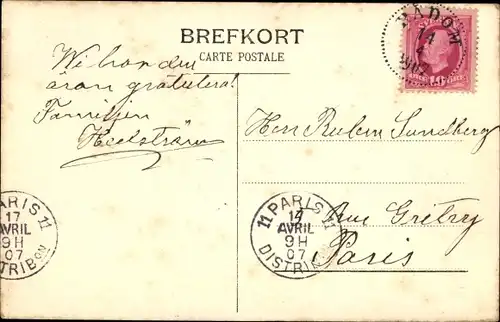 BREFKORT
CARTE POSTALE
RADOM
14
SVERIGE
10
Wi har den
äran gratulera!
Familjen
Hellström
Herr Ruben Sundberg
Rue Grétry
Paris
PARIS 11
17
AVRIL
9H
07
DISTRIBON
11 PARIS 11
17
AVRIL
9H
07
DISTRIB